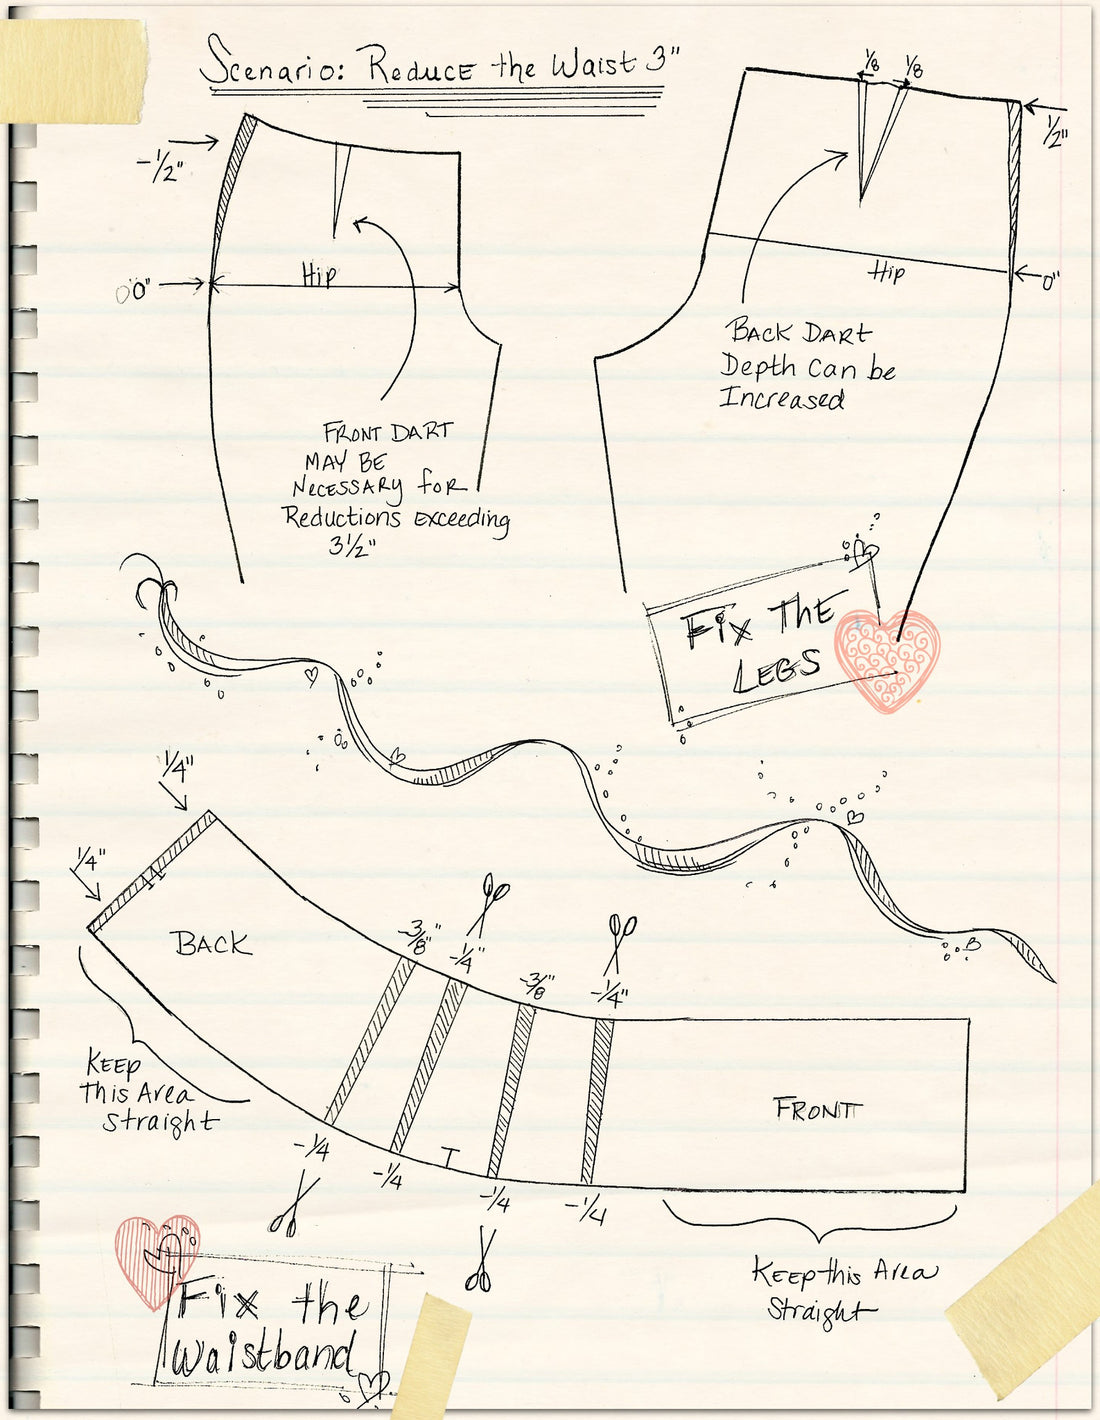 Scenario: Reduce the Waist 3"
-1/2"
0"
Hip
FRONT DART
MAY BE
Necessary for
Reductions exceeding
3 1/2"
1/8
1/8
1/2"
Hip
0"
BACK DARt
Depth Can be
Increased
Fix The
Legs
1/4"
1/4"
BACK
Keep
This Area
Straight
-3/8"
-1/4"
-3/8"
-1/4"
-1/4
-1/4
-1/4
-1/4
FRONT
Keep this Area
Straight
Fix the
Waistband